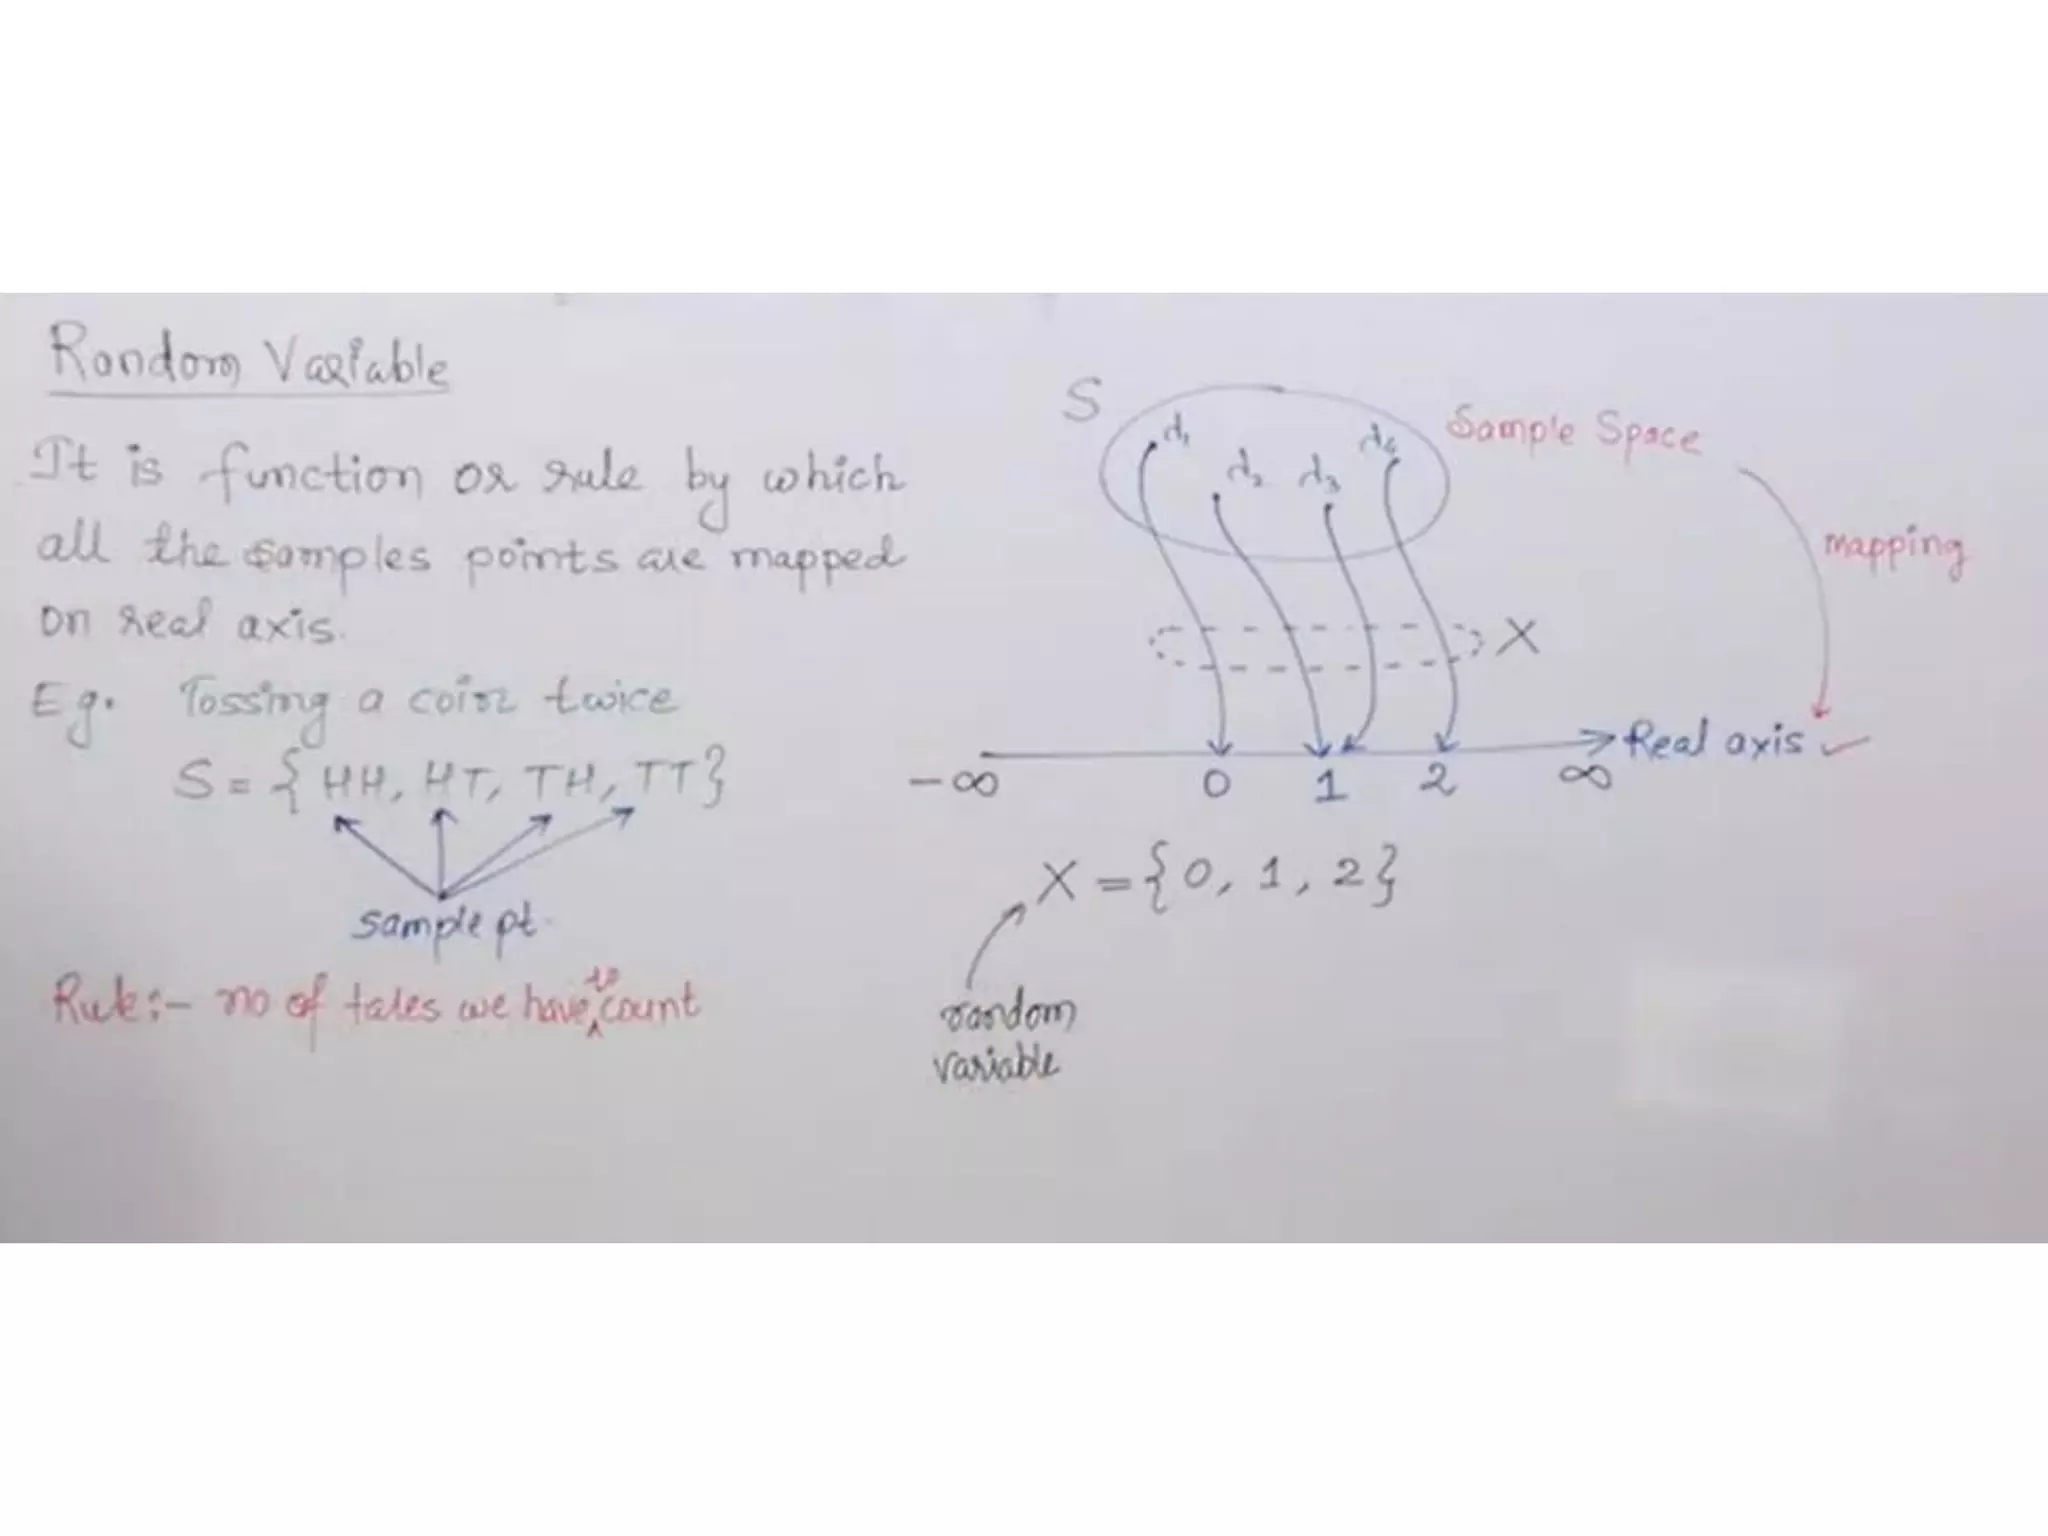 Random Variable
It is function or rule by which
all the samples points are mapped
on real axis.
Eg. Tossing a coin twice
S = { HH, HT, TH, TT}
sample pt.
Rule:- no of tales we have to count
S
λ1 λ2 λ3 λ4
Sample Space
mapping
X
Real axis ✓
-∞ 0 1 2 ∞
X = {0, 1, 2}
random
variable